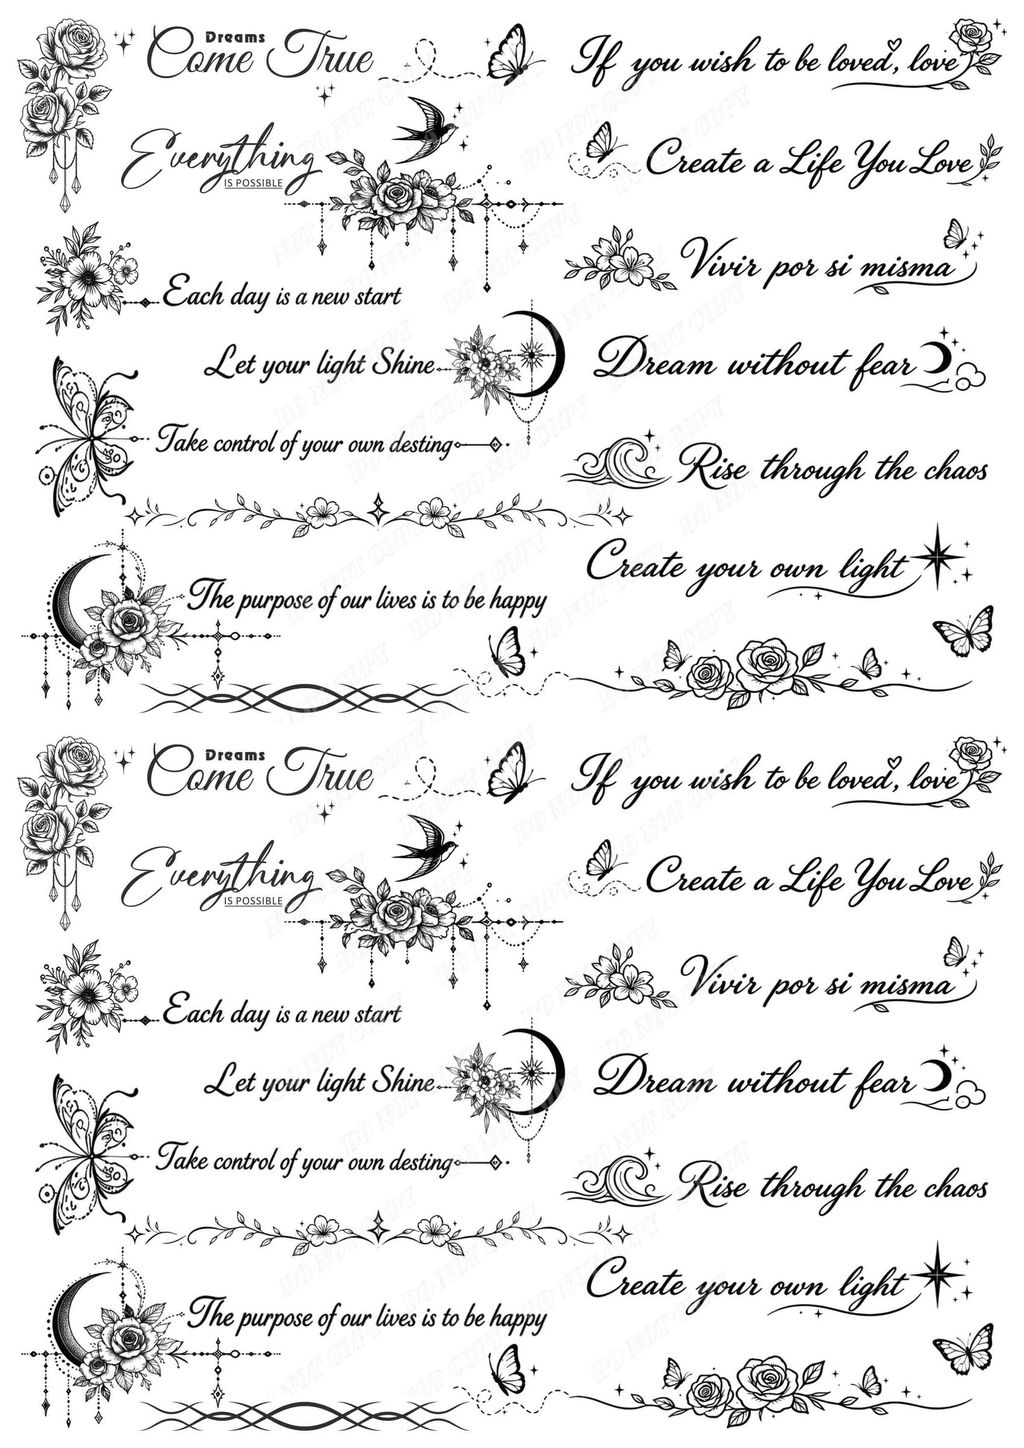 Dreams
Come True
Everything
IS POSSIBLE
Each day is a new start
Let your light Shine
Take control of your own desting
The purpose of our lives is to be happy
If you wish to be loved, love
Create a Life You Love
Vivir por si misma
Dream without fear
Rise through the chaos
Create your own light
Dreams
Come True
Everything
IS POSSIBLE
Each day is a new start
Let your light Shine
Take control of your own desting
The purpose of our lives is to be happy
If you wish to be loved, love
Create a Life You Love
Vivir por si misma
Dream without fear
Rise through the chaos
Create your own light
DO NOT COPY